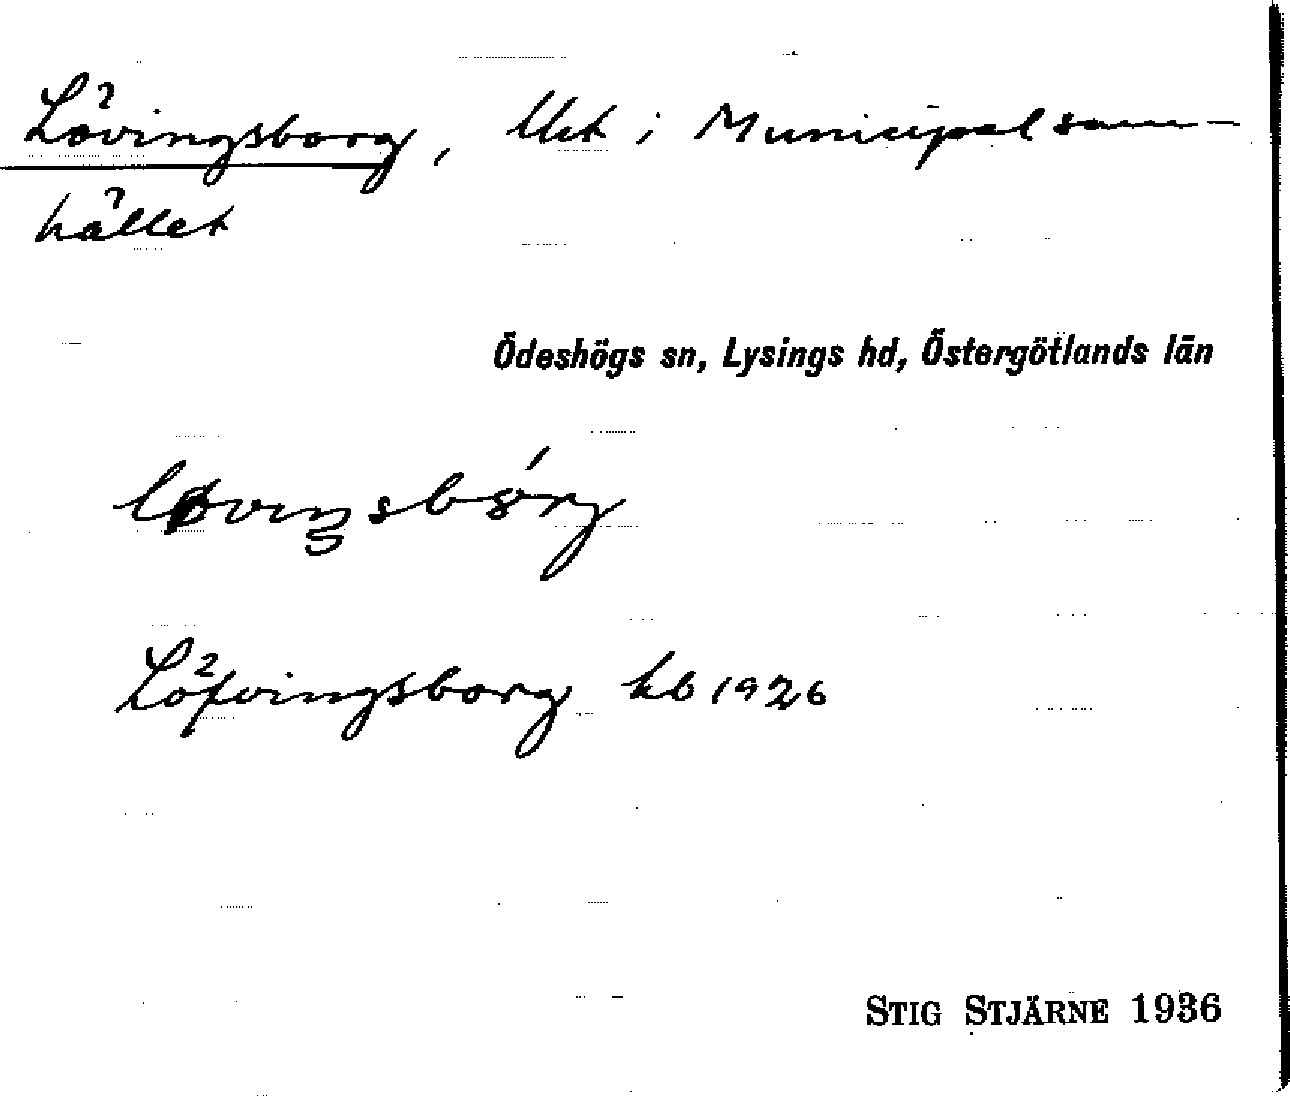 Lövingsborg, Uet i Municipalsam-
hället
Ödeshögs sn, Lysings hd, Östergötlands län
Löfvingsborg hb 1926
STIG STJÄRNE 1936